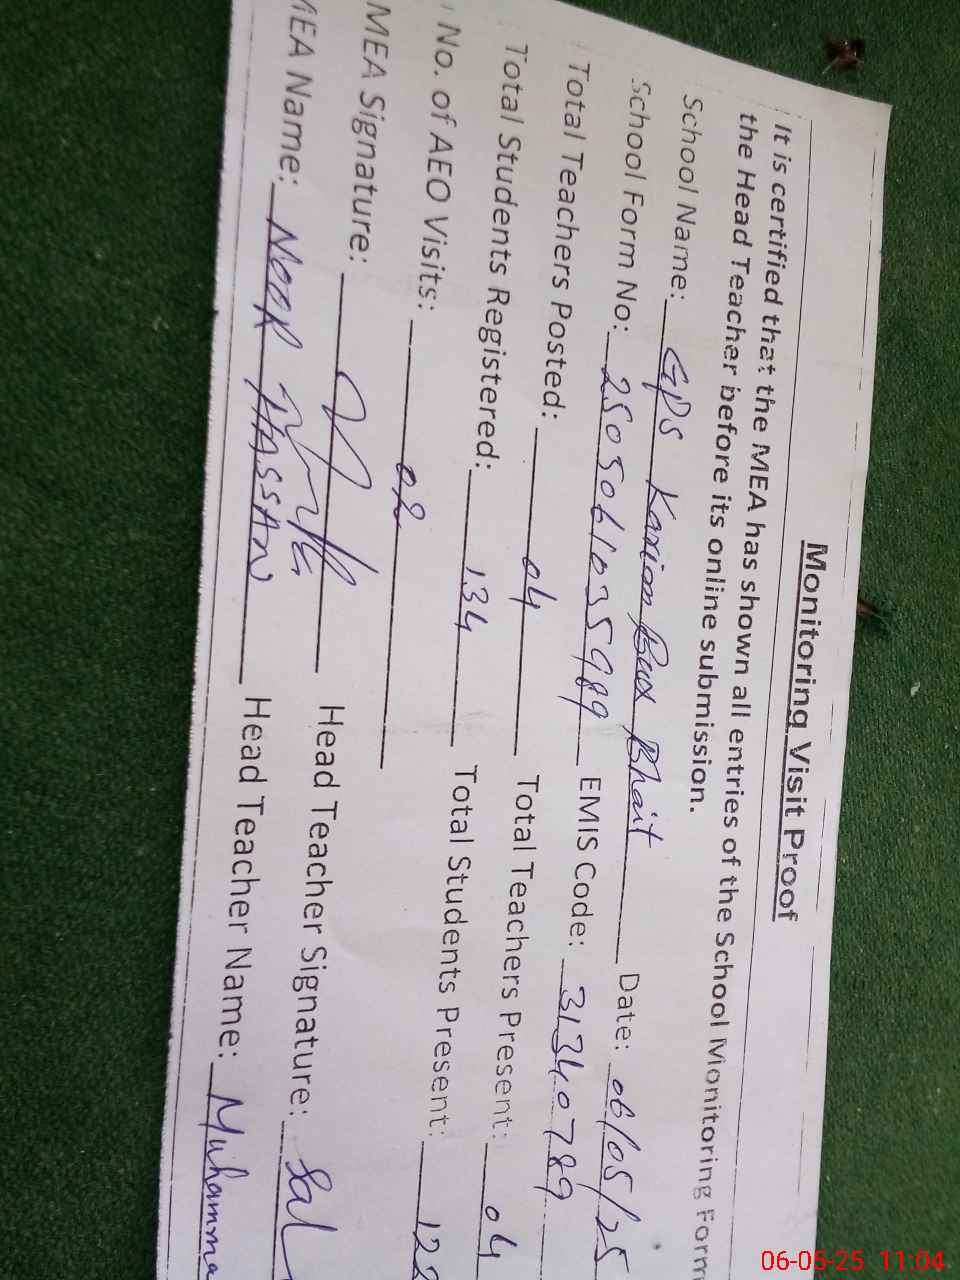 Monitoring Visit Proof
It is certified that the MEA has shown all entries of the School Monitoring Form
the Head Teacher before its online submission.
School Name: GPS Karim Bux Bhait Date: 06/05/25
School Form No: 2505061035989 EMIS Code: 31340789
Total Teachers Posted: 04 Total Teachers Present: 04
Total Students Registered: 134 Total Students Present: 122
No. of AEO Visits: 02
MEA Signature: Head Teacher Signature:
MEA Name: NOOR HASSAN Head Teacher Name: Muhamma
06-05-25 11:04